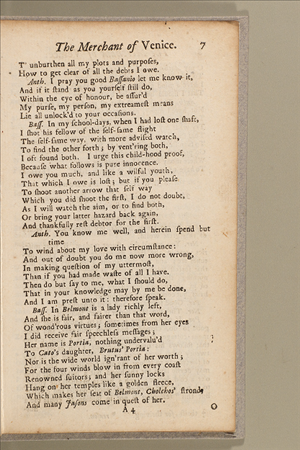 The Merchant of Venice. 7
T' unburthen all my plots and purposes,
How to get clear of all the debts I owe.
Anth. I pray you good Bassanio let me know it,
And if it stand as you yourself still do,
Within the eye of honour, be assur'd
My purse, my person, my extreamest means
Lie all unlock'd to your occasions.
Bass. In my school-days, when I had lost one shaft,
I shot his fellow of the self-same flight
The self-same way, with more advised watch,
To find the other forth; by vent'ring both,
I oft found both. I urge this child-hood proof,
Because what follows is pure innocence.
I owe you much, and like a wilful youth,
That which I owe is lost; but if you please
To shoot another arrow that self way
Which you did shoot the first, I do not doubt,
As I will watch the aim, or to find both,
Or bring your latter hazard back again,
And thankfully rest debtor for the first.
Anth. You know me well, and herein spend but
time
To wind about my love with circumstance:
And out of doubt you do me now more wrong,
In making question of my uttermost,
Than if you had made waste of all I have.
Then do but say to me, what I should do,
That in your knowledge may by me be done,
And I am prest unto it: therefore speak.
Bass. In Belmont is a lady richly left,
And she is fair, and fairer than that word,
Of wond'rous virtues; sometimes from her eyes
I did receive fair speechless messages;
Her name is Portia, nothing undervalu'd
To Cato's daughter, Brutus' Portia:
Nor is the wide world ign'rant of her worth;
For the four winds blow in from every coast
Renowned suitors; and her sunny locks
Hang on her temples like a golden fleece,
Which makes her seat of Belmont, Cholchos' strond,
And many Jasons come in quest of her.
A 4 O